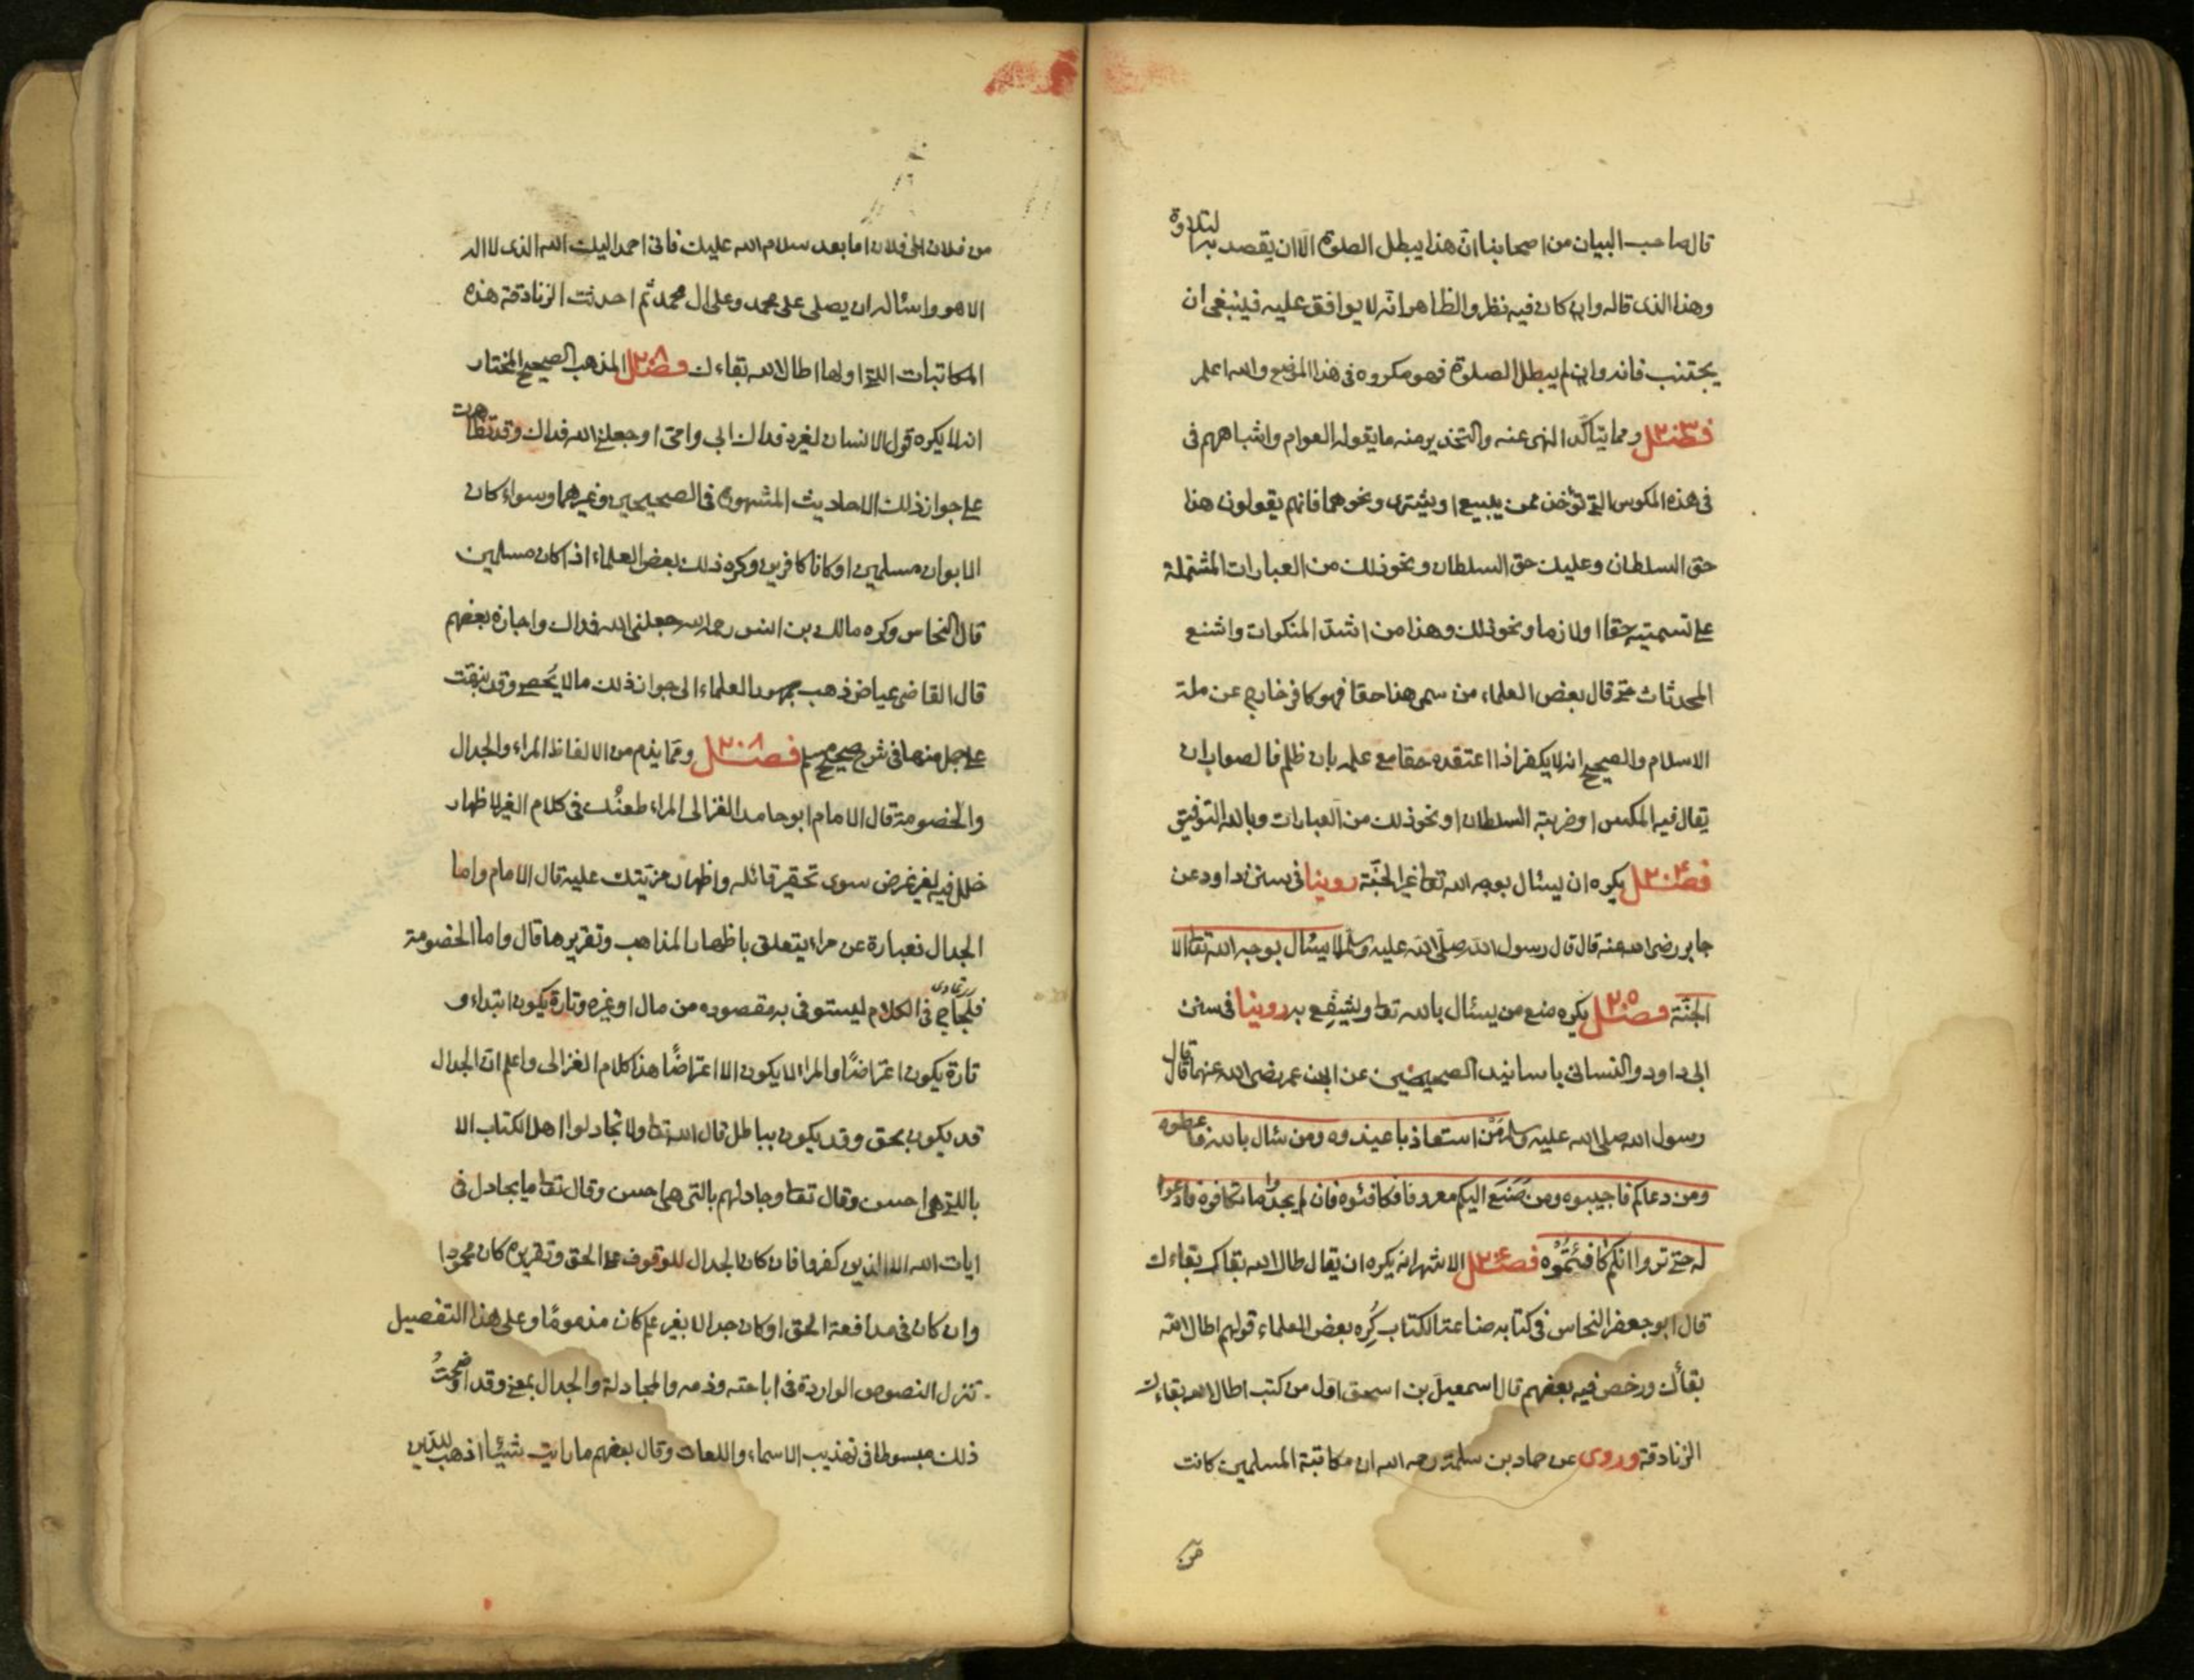 قال صاحب البيان من اصحابنا ان هذا يبطل الصلوة الا ان يقصد به التلاوة
وهذا الذى قاله وان كان فيه نظر والظاهر انه لا يوافق عليه فينبغى ان
يجتنب فانه وان لم يبطل الصلوة فهو مكروه فى هذا الموضع والله اعلم
فصل ٢٠٣ ومما يتاكّد النهى عنه والتحذير منه ما يقوله العوام واشباههم فى
فى هذه المكوس التى تؤخذ ممن يبيع او يشترى ونحوهما فانهم يقولون هذا
حق السلطان وعليك حق السلطان ونحو ذلك من العبارات المشتملة
على تسميته حقا او لازما ونحو ذلك وهذا من اشدّ المنكرات واشنع
المحدثات حتى قال بعض العلماء من سمى هذا حقا فهو كافر خارج عن ملة
الاسلام والصحيح انه لا يكفر اذا اعتقده حقا مع علمه بان ظلم فالصواب ان
يقال فيه المكس او ضريبة السلطان او نحو ذلك من العبارات وبالله التوفيق
فصل ٢٠٤ يكره ان يسئال بوجه الله تعا غير الجنّة روينا فى سنن داود عن
جابر رضى الله عنه قال قال رسول الله صلّى الله عليه وسلّم لا يسئال بوجه الله تعا الا
الجنّة فصل ٢٠٥ يكره منع من يسئال بالله تعا ويشفع به روينا فى سنن
ابى داود والنسائى باسانيد الصحيحين عن ابن عمر رضى الله عنهما قال قال
رسول الله صلى الله عليه وسلم من استعاذ با عيذوه ومن سئال بالله فاعطوه
ومن دعاكم فاجيبوه ومن صَنَعَ اليكم معروفا فكافئوه فان لم يجدوا ما تكافوه فادعوا
له حتى تروا انكم كافئتُمُوْه فصل ٢٠٦ الاشهر انه يكره ان يقال طال الله بقاك بقاءك
قال ابو جعفر النحاس فى كتابه صناعة الكتاب كُرِه بعض العلماء قولهم اطال الله
بقأك ورخص فيه بعضهم قال اسمعيل بن اسحق اول من كتب اطال الله بقاءك
الزنادقة وروى عن حماد بن سلمة رحمه الله ان مكاتبة المسلمين كانت
من
من فلان الى فلان اما بعد سلام الله عليك فانى احمد اليك الله الذى لا اله
الا هو واسئاله ان يصلى على محمد وعلى ال محمد ثم احدثت الزنادقة هذه
المكاتبات التى اولها اطال الله بقاءك فصل ٢٠٨ المذهب الصحيح المختار
انه لا يكره قول الانسان لغيره فداك ابى وامى او جعلنى الله فداك وقد تظاهرت
على جواز ذلك الاحاديث المشهورة فى الصحيحين وغيرهما وسواء كان
الابوان مسلمين او كانا كافرين وكره ذلك بعض العلماء اذا كان مسلمين
قال النحاس وكره مالك بن انس رحمه الله جعلنى الله فداك واجازه بعضهم
قال القاضى عياض ذهب جمهور العلماء الى جواز ذلك مالا يُحصى وقد نبهت
على جمل منها فى شرح صحيح مسلم فصل ٢٠٨ ومما يذم من الالفاظ المراء والجدال
والخصومة قال الامام ابو حامد الغزالى المراء طعنُك فى كلام الغير لاظهار
خلل فيه لغير غرض سوى تحقير قائله واظهار مزيتك عليه قال الامام واما
الجدال فعبارة عن مراء يتعلق باظهار المذاهب وتقريرها قال واما الخصومة
فلجاج فى الكلام ليستوفى به مقصوده من مال او غيره وتارة يكون ابتداء و
تارة يكون اعتراضًا والمراء لا يكون الا اعتراضًا هذا كلام الغزالى واعلم ان الجدال
قد يكون بحق وقد يكون بباطل قال الله تعا ولا تجادلوا اهل الكتاب الا
بالتى هى احسن وقال تعا وجادلهم بالتى هى احسن وقال تعا ما يجادل فى
ايات الله الا الذين كفروا فان كان الجدال للوقوف على الحق وتقريره كان محمودا
وان كان فى مدافعة الحق او كان جدالا بغير علم كان مذمومًا وعلى هذا التفصيل
تنزل النصوص الواردة فى اباحته وذمه والمجادلة والجدال بمعنى وقد اوضحتُ
ذلك مبسوطا فى تهذيب الاسماء واللغات وقال بعضهم ما رايت شيئا اذهب للدّين